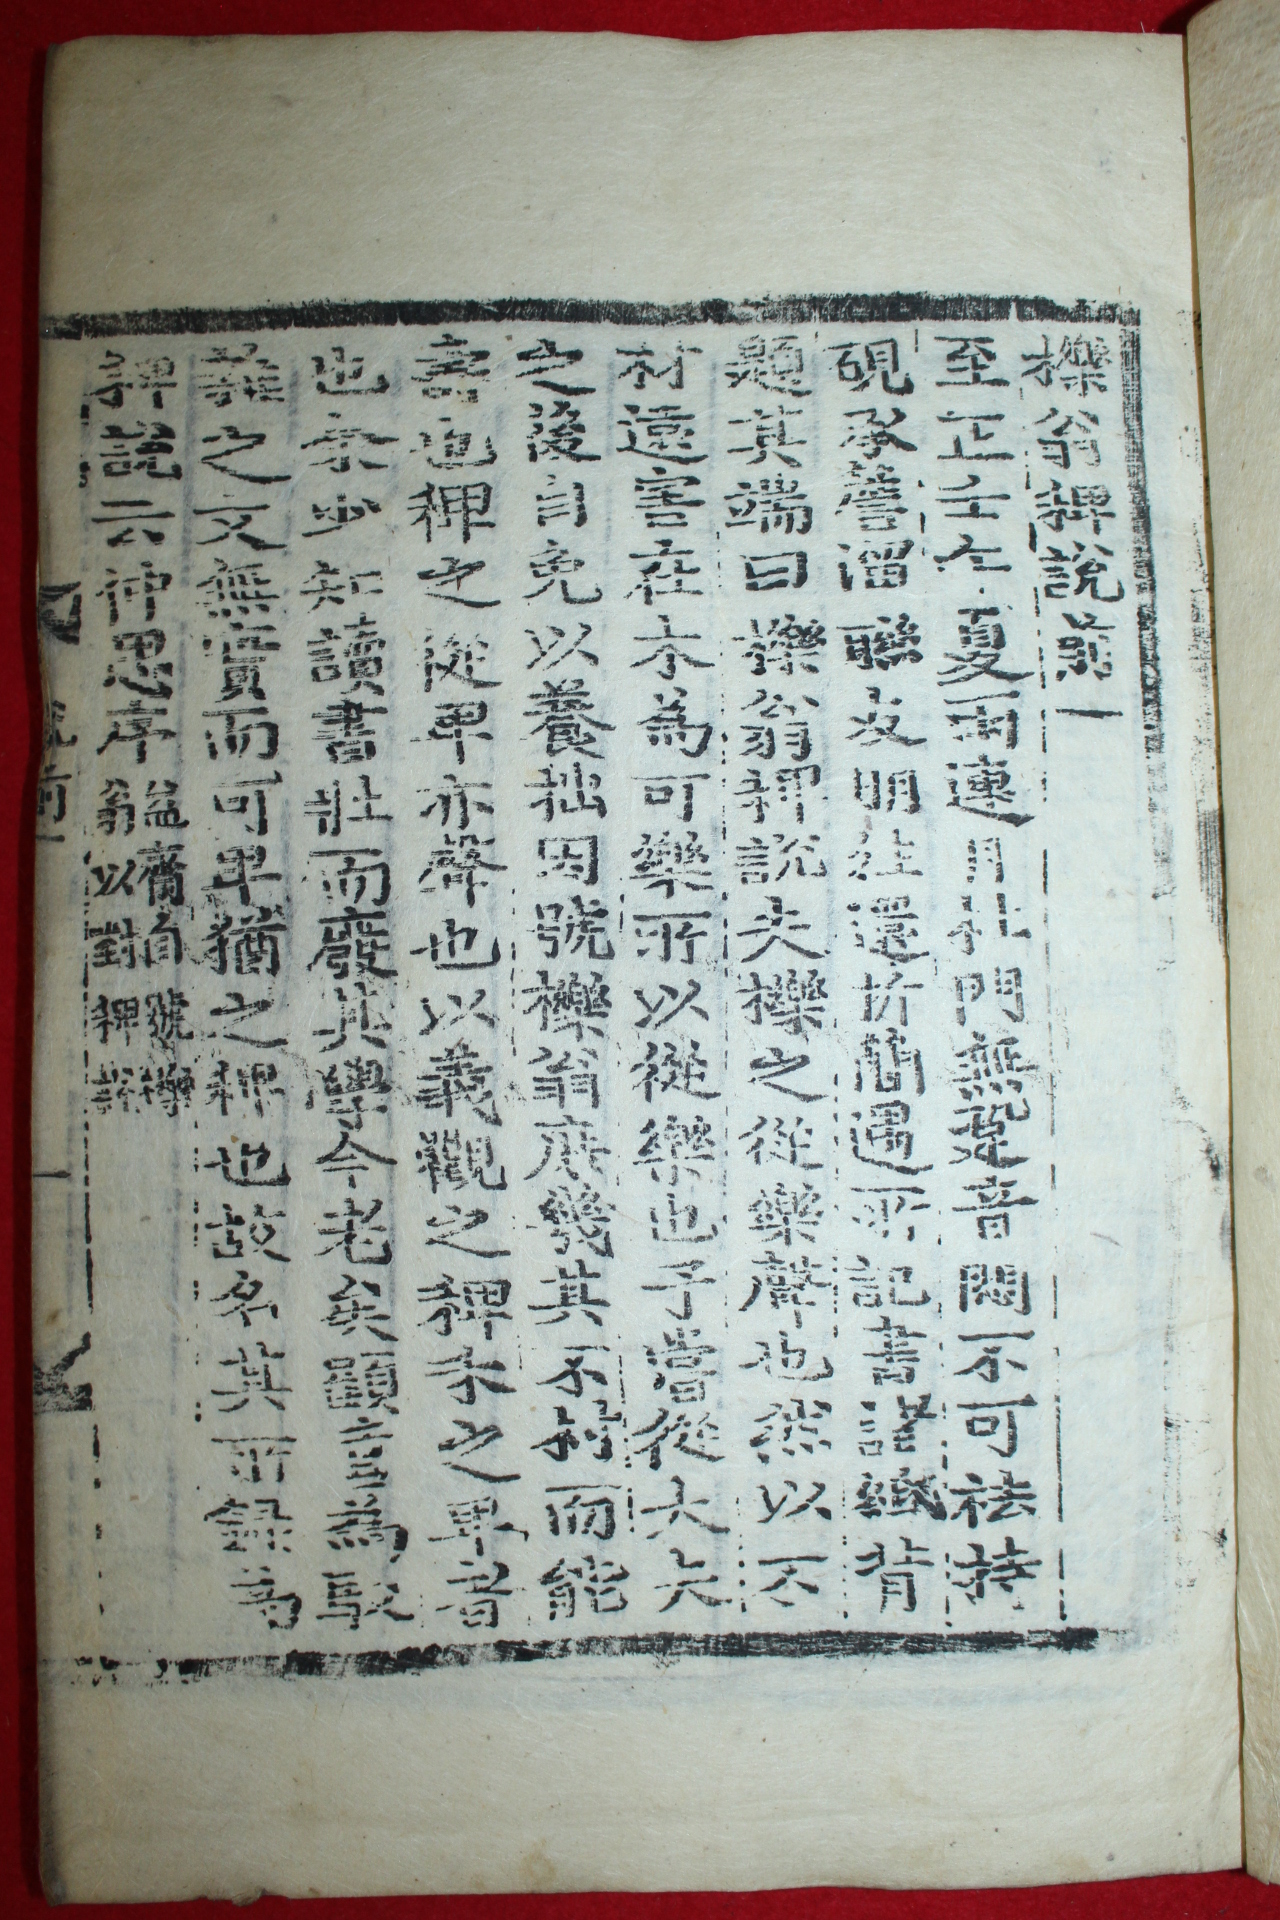 櫟翁稗說前一
至正壬午夏雨連月杜門無跫音悶不可袪持
硯承簷溜聯友朋往還折簡遇所記書諸紙背
題其端曰櫟翁稗說夫櫟之從樂聲也然以不
材遠害在木爲可樂所以從樂也予嘗從大夫
之後自免以養拙因號櫟翁庶幾其不材而能
壽也稗之從卑亦聲也以義觀之稗禾之卑者
也余少知讀書壯而廢其學今老矣顧喜爲駁
雜之文無實而可卑猶之稗也故名其所錄爲
稗說云仲思序
益齋自號櫟
翁以對稗說